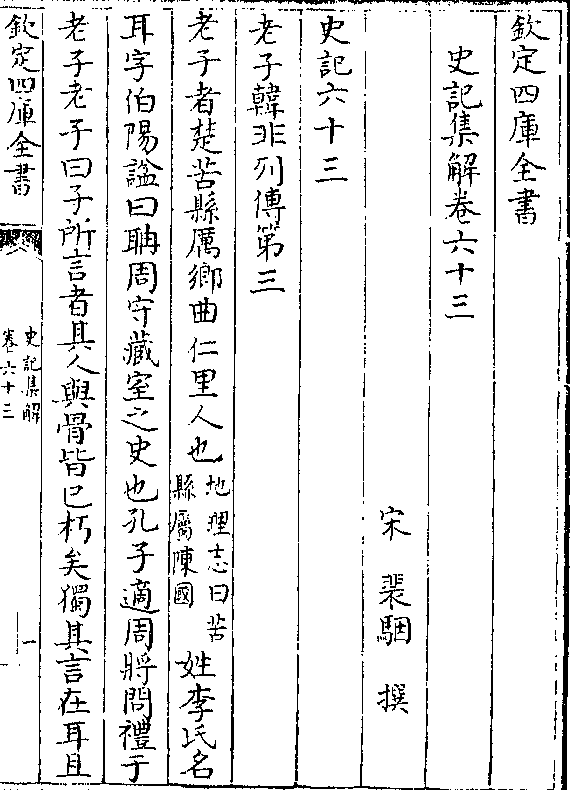 欽定四庫全書
史記集解卷六十三
宋 裴駰 撰
史記六十三
老子韓非列傳第三
老子者楚苦縣厲鄉曲仁里人也地理志曰苦縣屬陳國姓李氏名
耳字伯陽諡曰耼周守藏室之史也孔子適周將問禮于
老子老子曰子所言者其人與骨皆已朽矣獨其言在耳且
欽定四庫全書
史記集解
卷六十三
一